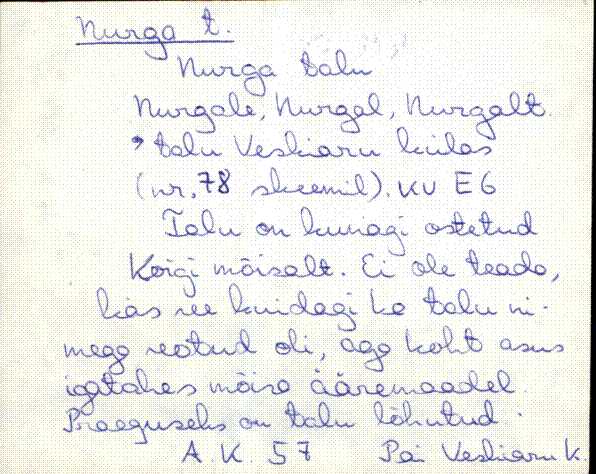 Nurga t.
Nurga talu
Nurgale, Nurgal, Nurgalt.
talu Veskiaru külas
(nr. 78 skeemil). KV E6
Talu on kunagi ostetud
Koigi mõisalt. Ei ole teada,
kas see kuidagi ka talu ni-
mega seotud oli, aga koht asus
igatahes mõisa ääremaadel.
Praeguseks on talu lõhutud.
A.K. 57 Pai Veskiaru k.